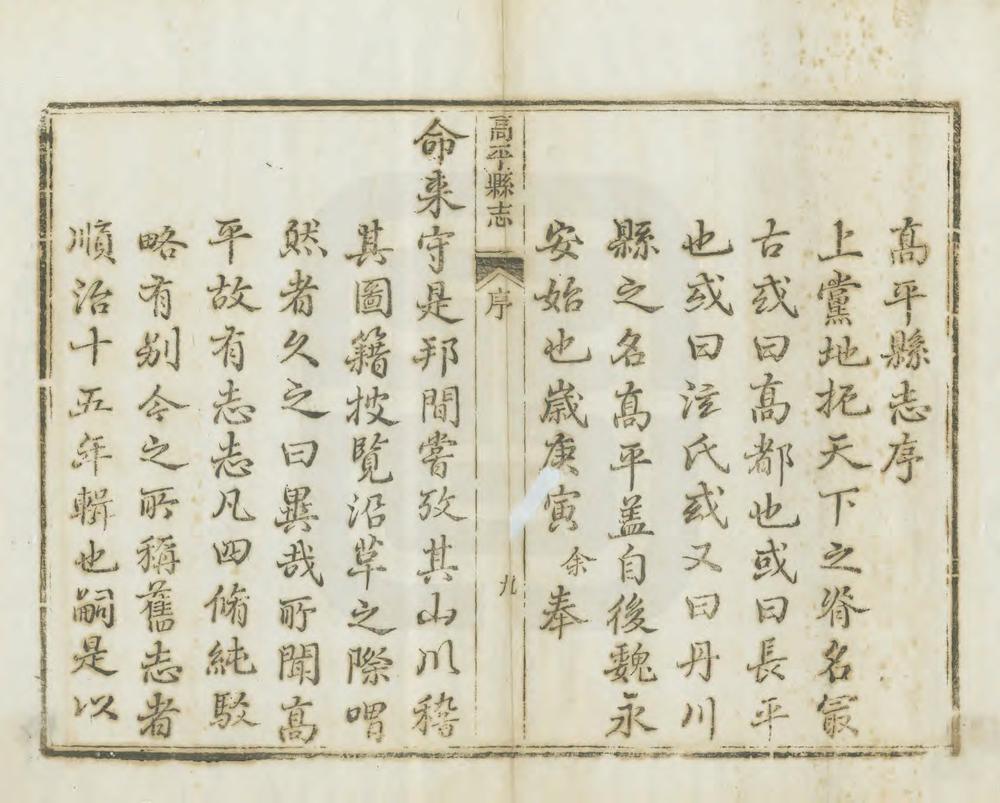 髙平縣志序
上黨地扼天下之脊名㝡
古或曰髙都也或曰長平
也或曰泫氏或又曰丹川
縣之名髙平盖自後魏永
安始也歲庚寅余奉
高平縣志
序
九
命来守是邦間嘗攷其山川稽
其圖籍披覧沿革之際喟
然者久之曰異哉所聞髙
平故有志志凡四脩純駁
略有别今之所稱舊志者
順治十五年輯也嗣是以